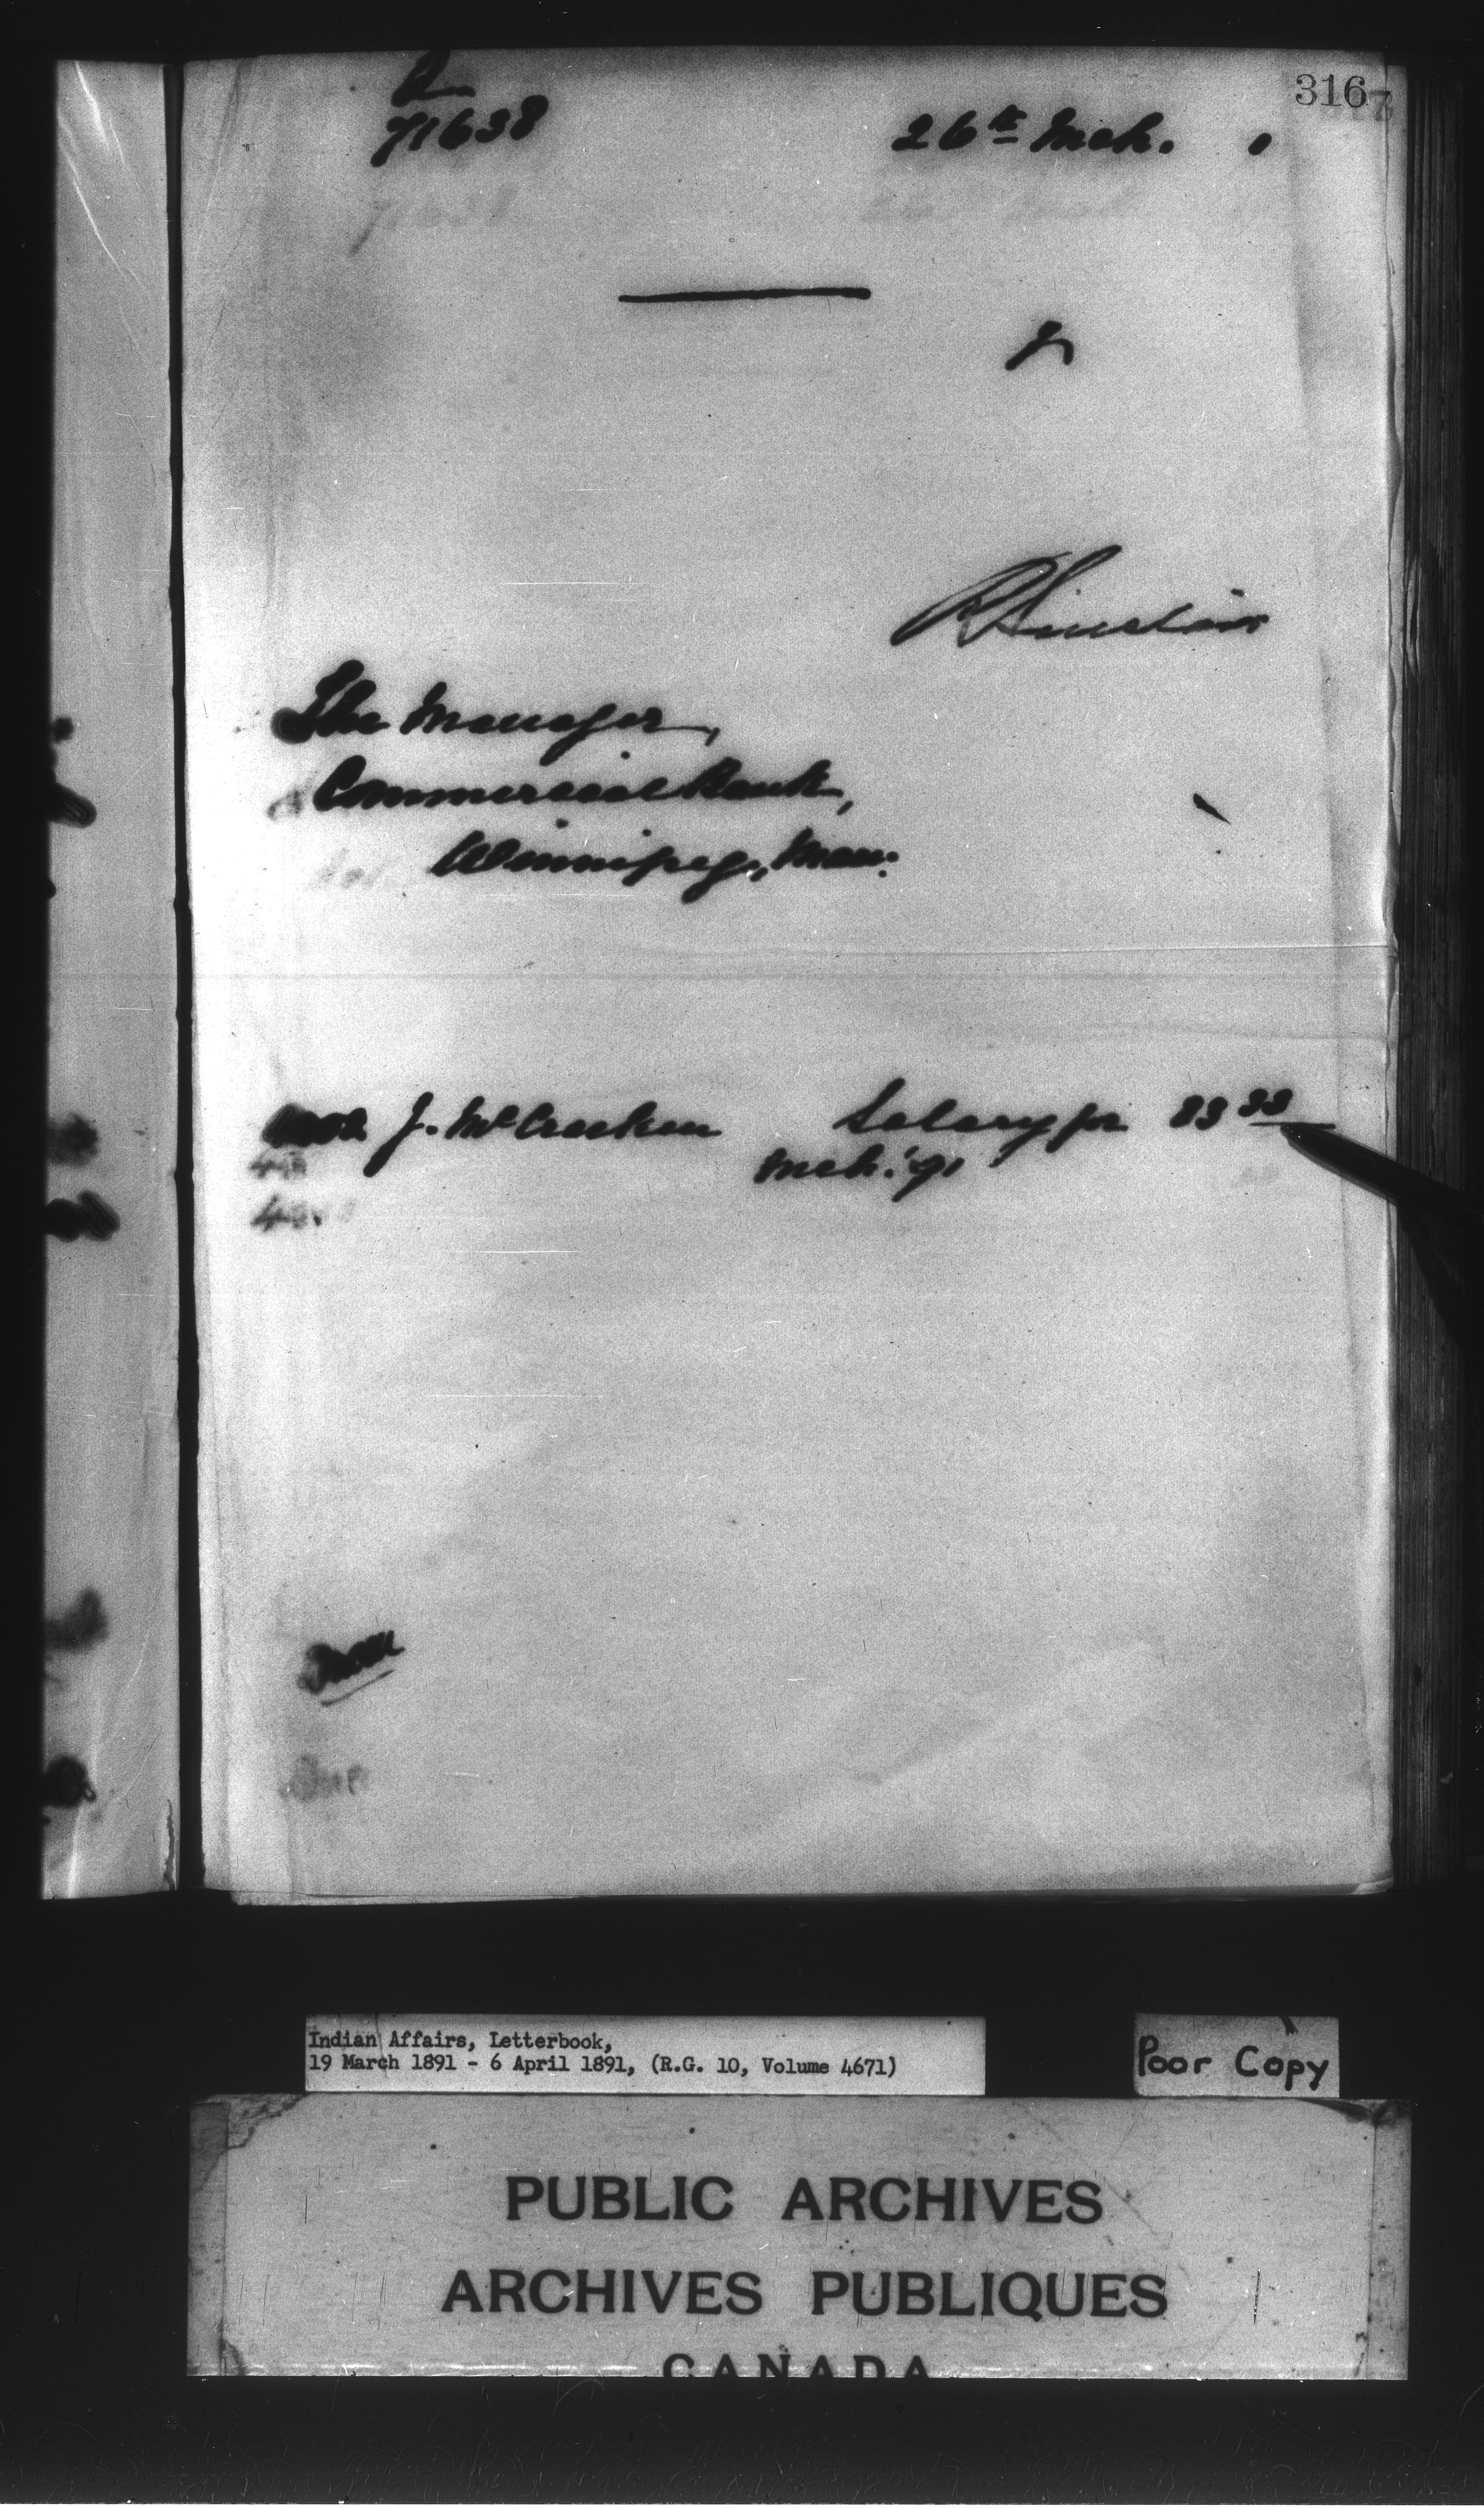 316
71638
26th Mch. 1
R Sinclair
The Manager,
Commercial Bank,
Winnipeg, Man:
J. McCracken Salary for 83 33
Mch. '91
Indian Affairs, Letterbook,
19 March 1891 - 6 April 1891, (R.G. 10, Volume 4671)
Poor Copy
PUBLIC ARCHIVES
ARCHIVES PUBLIQUES
CANADA